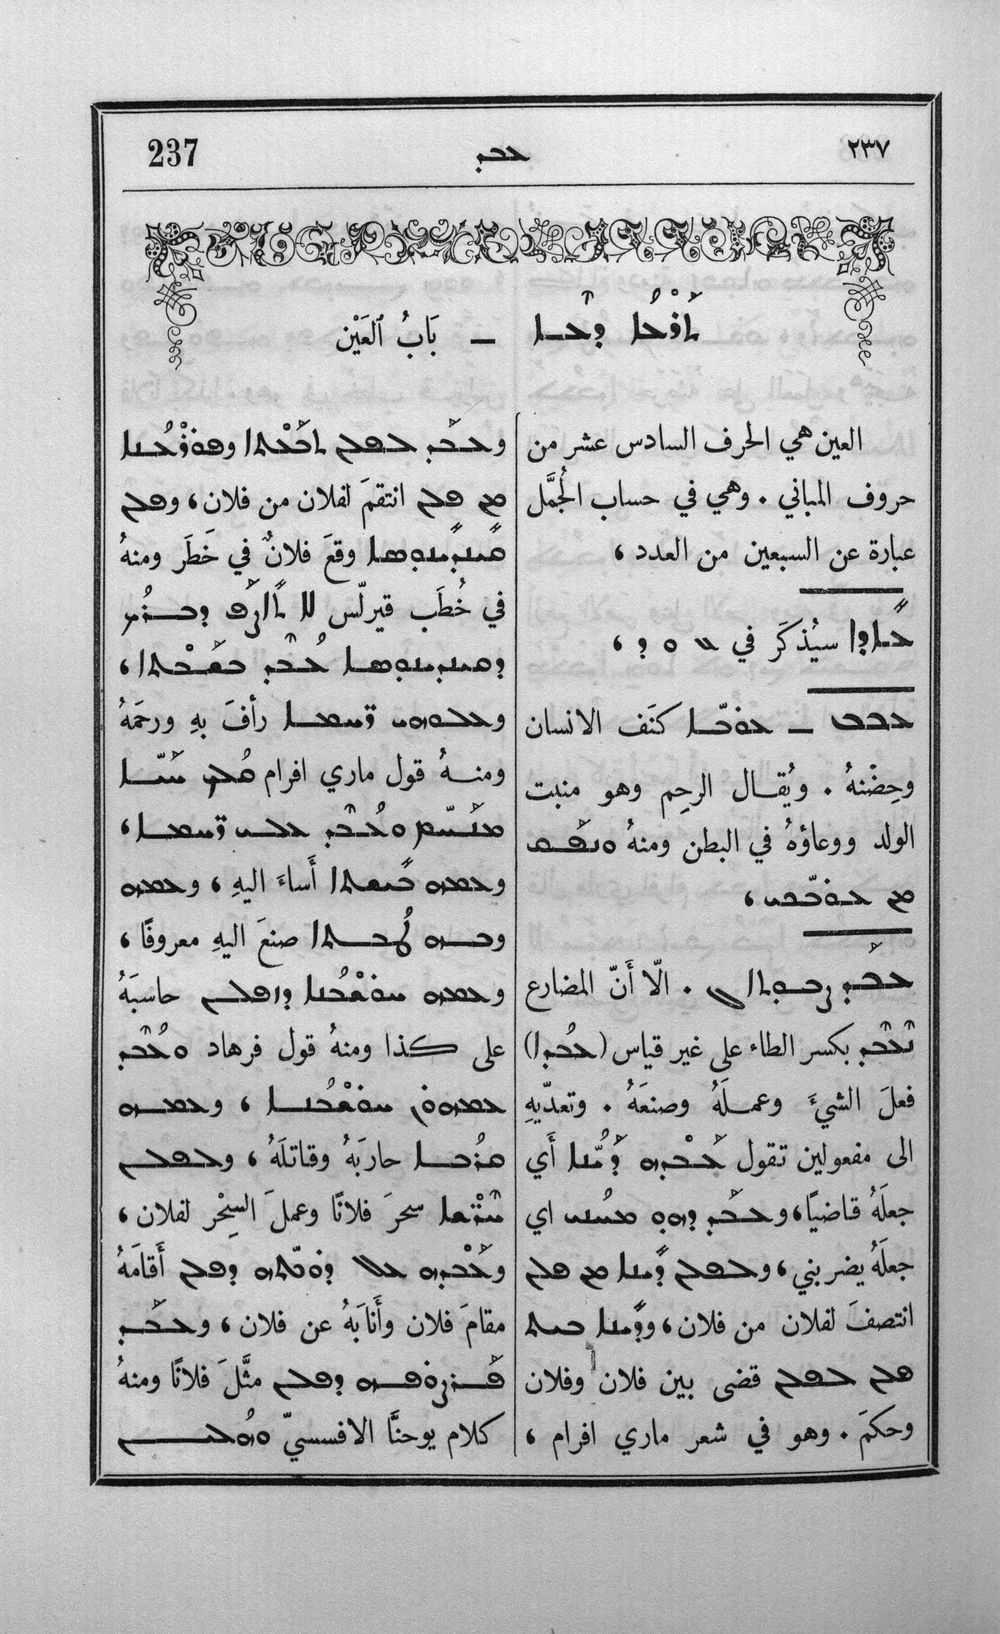 237 ܥܒܕ ٢٣٧
ܬܪܥܐ ܕܥܐ — بَابُ ٱلعَيْن
العين هي الحرف السادس عشر من
حروف المباني . وهي في حساب الجُمَّل
عبارة عن السبعين من العدد ،
ܥܐܕܐ سيُذكَر في ܝ ܘ ܕ ،
ܥܒܒ — ܥܘܒܐ كنَف الانسان
وحِضْنهُ . ويُقال الرحِم وهو منبت
الولد ووعاؤهُ في البطن ومنهُ ܘܢܦܩ
ܡܢ ܥܘܒܗ ،
ܥܒܕ . الّا أَنّ المضارع
ܢܥܒܕ بكسر الطاء على غير قياس (ܥܒܕܐ)
فعلَ الشيءَ وعملَهُ وصنعَهُ . وتعدّيهِ
الى مفعولين تقول ܥܒܕܗ ܕܝܢܐ أَي
جعلَهُ قاضيًا، ܘܥܒܕ ܕܗܘ ܡܚܝܢܝ اي
جعلَهُ يضربني ، ܘܥܒܕ ܕܝܢܐ ܡܢ ܦܠܢ
انتصفَ لفلان من فلان ، ܘܕܝܢܐ ܒܝܬ
ܦܠܢ ܠܦܠܢ قضى بين فلان وفلان
وحكمَ . وهو في شعر ماري افرام ،
ܘܥܒܕ ܠܦܠܢ ܬܒܥܬܐ ܘܦܘܪܥܢܐ
ܡܢ ܦܠܢ انتقمَ لفلان من فلان ، ܘܦܠܢ
ܩܝܢܕܝܢܘܣ وقعَ فلانٌ في خَطَر ومنهُ
في خُطَب قيرلّس ܠܐ
ܕܩܝܢܕܝܢܘܣ ܥܒܕ ،
ܘܥܠܘܗܝ ܪܚܡܐ رأَفَ بهِ ورحمَهُ
ومنهُ قول ماري افرام
ܘܥܒܕ ܥܠܝ ܪܚܡܐ ،
ܘܥܡܗ ܒܝܫܬܐ أَساءَ اليهِ ، ܘܥܡܗ
ܘܒܗ ܛܒܬܐ صنعَ اليهِ معروفًا ،
ܘܥܡܗ ܚܘܫܒܢܐ حاسبَهُ
على كذا ومنهُ قول فرهاد ܘܥܒܕ
ܥܡܗܘܢ ܚܘܫܒܢܐ ، ܘܥܡܗ
ܩܪܒܐ حاربَهُ وقاتلَهُ ، ܘܠܦܠܢ
ܚܪܫܐ سحرَ فلانًا وعملَ السِحْر لفلان ،
ܘܥܒܕܗ ܥܠ ܕܘܟܬܗ ܕܦܠܢ أَقامَهُ
مقامَ فلان وأَنابَهُ عن فلان ، ܘܥܒܕ
ܦܪܨܘܦܗ ܕܦܠܢ مثَّلَ فلانًا ومنهُ
كلام يوحنَّا الافسسيّ